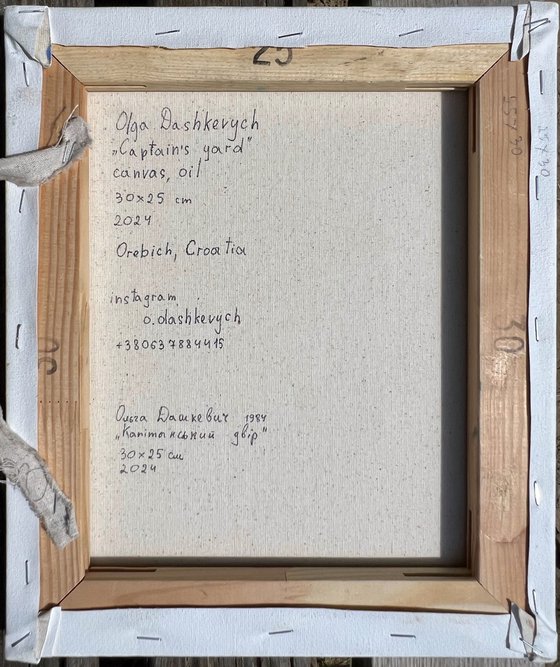 25
Olga Dashkevych
„Captain's yard"
canvas, oil
30×25 cm
2024
Orebich, Croatia
instagram
o.dashkevych
+380637884415
Ольга Дашкевич 1984
„Капітанський двір"
30×25 см
2024
30
30